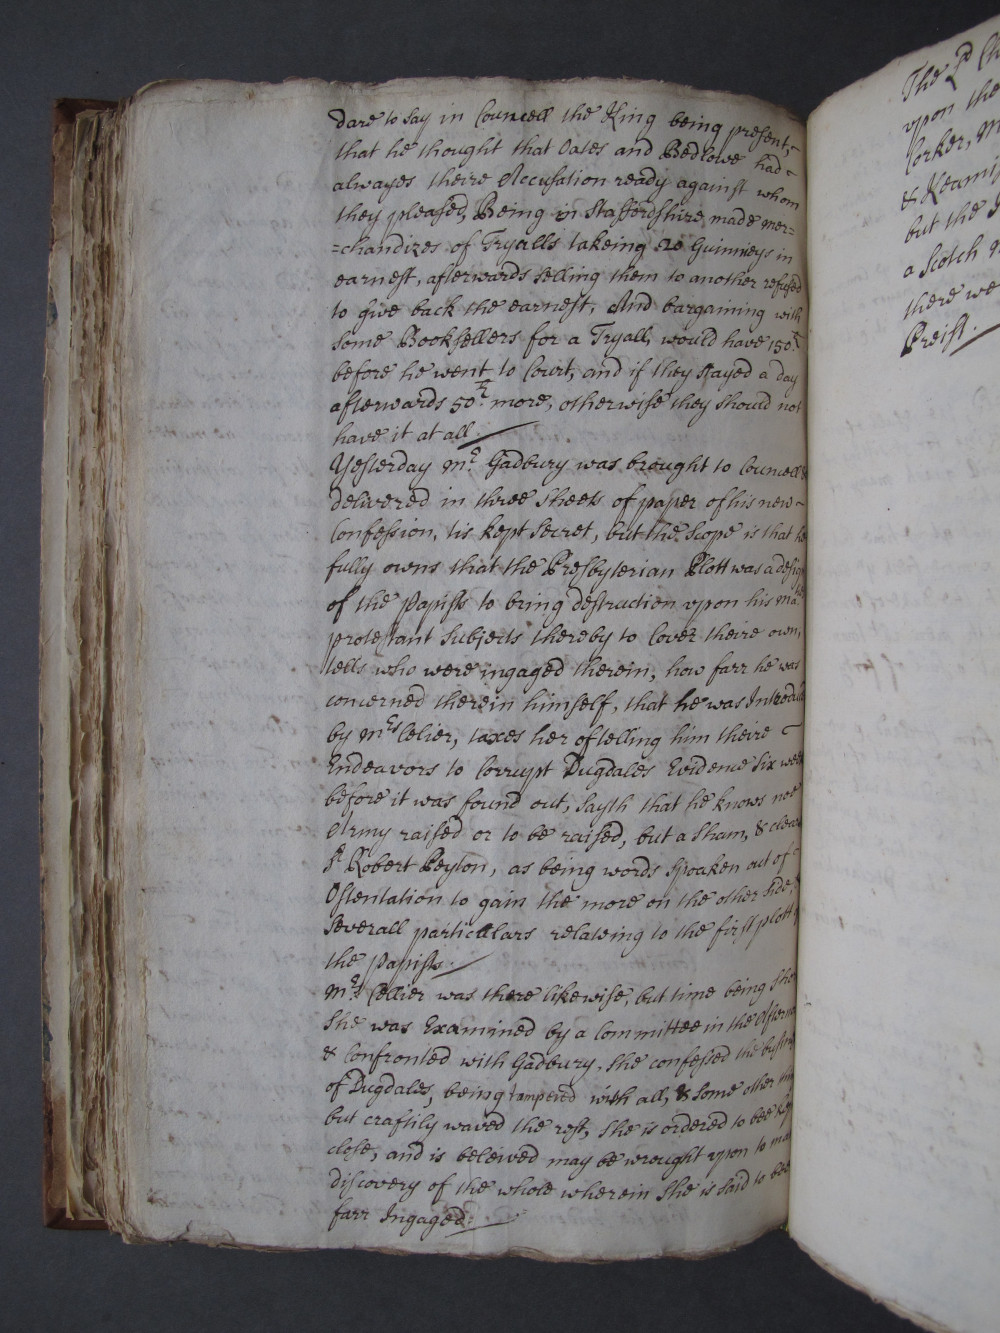 dare to say in Councell the King being present,
that he thought that Oates and Bedlowe had
alwayes theire Accusation ready against whom
they pleased, Being in Staffordshire, made mer=
=chandizes of Tryalls takeing 20 Guinneys in
earnest, afterwards selling them to another refused
to give back the earnest, And bargaining with
some Booksellers for a Tryall, would have 150li
before he went to Court, and if they stayed a day
afterwards 50li more, otherwise they should not
have it at all.
Yesterday Mr Gadbury was brought to Councell &
delivered in three sheets of paper of his new
Confession, tis kept secret, but the scope is that he
fully owns that the Presbyterian Plott was a
of the Papists to bring destruction upon his Ma
protestant Subjects thereby to Cover theire own,
tells who were ingaged therein, how farr he was
concerned therein himself, that he was
by Mrs Celier, taxes her of telling him theire
Endeavors to Corrupt Dugdales Evidence six
before it was found out, sayth that he knows noe
Army raised or to be raised, but a sham, &
Sr Robert Peyton, as being words spoaken out of
Ostentation to gain the more on the other side,
severall particulars relateing to the first plott
the Papists.
Mrs Cellier was there likewise, but time being
She was Examined by a Committee in the
& Confronted with Gadbury, She confessed the
of Dugdales, being tampered with all, & some other
but craftily waved the rest, She is ordered to bee
close, and is beleived may be wrought upon to
discovery of the whole wherein She is said to bee
farr Ingaged.
The Ld
upon the
Corker,
&
but the
a Scotch
there we
Preist.